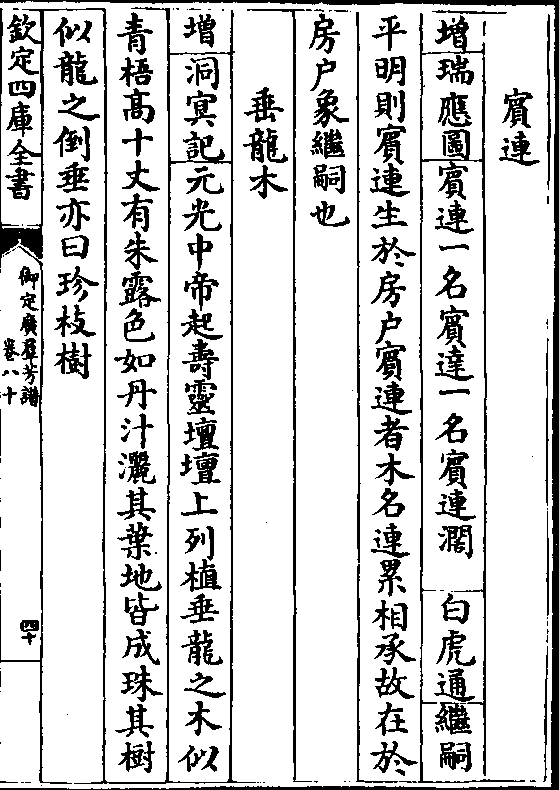 賓連
增瑞應圖賓連一名賓達一名賓連濶　白虎通繼嗣
平明則賓連生於房户賓連者木名連累相承故在於
房户象繼嗣也
垂龍木
增洞冥記元光中帝起壽靈壇壇上列植垂龍之木似
青梧高十丈有朱露色如丹汁灑其葉地皆成珠其樹
似龍之倒垂亦曰珍枝樹
欽定四庫全書
御定廣羣芳譜
卷八十
四十